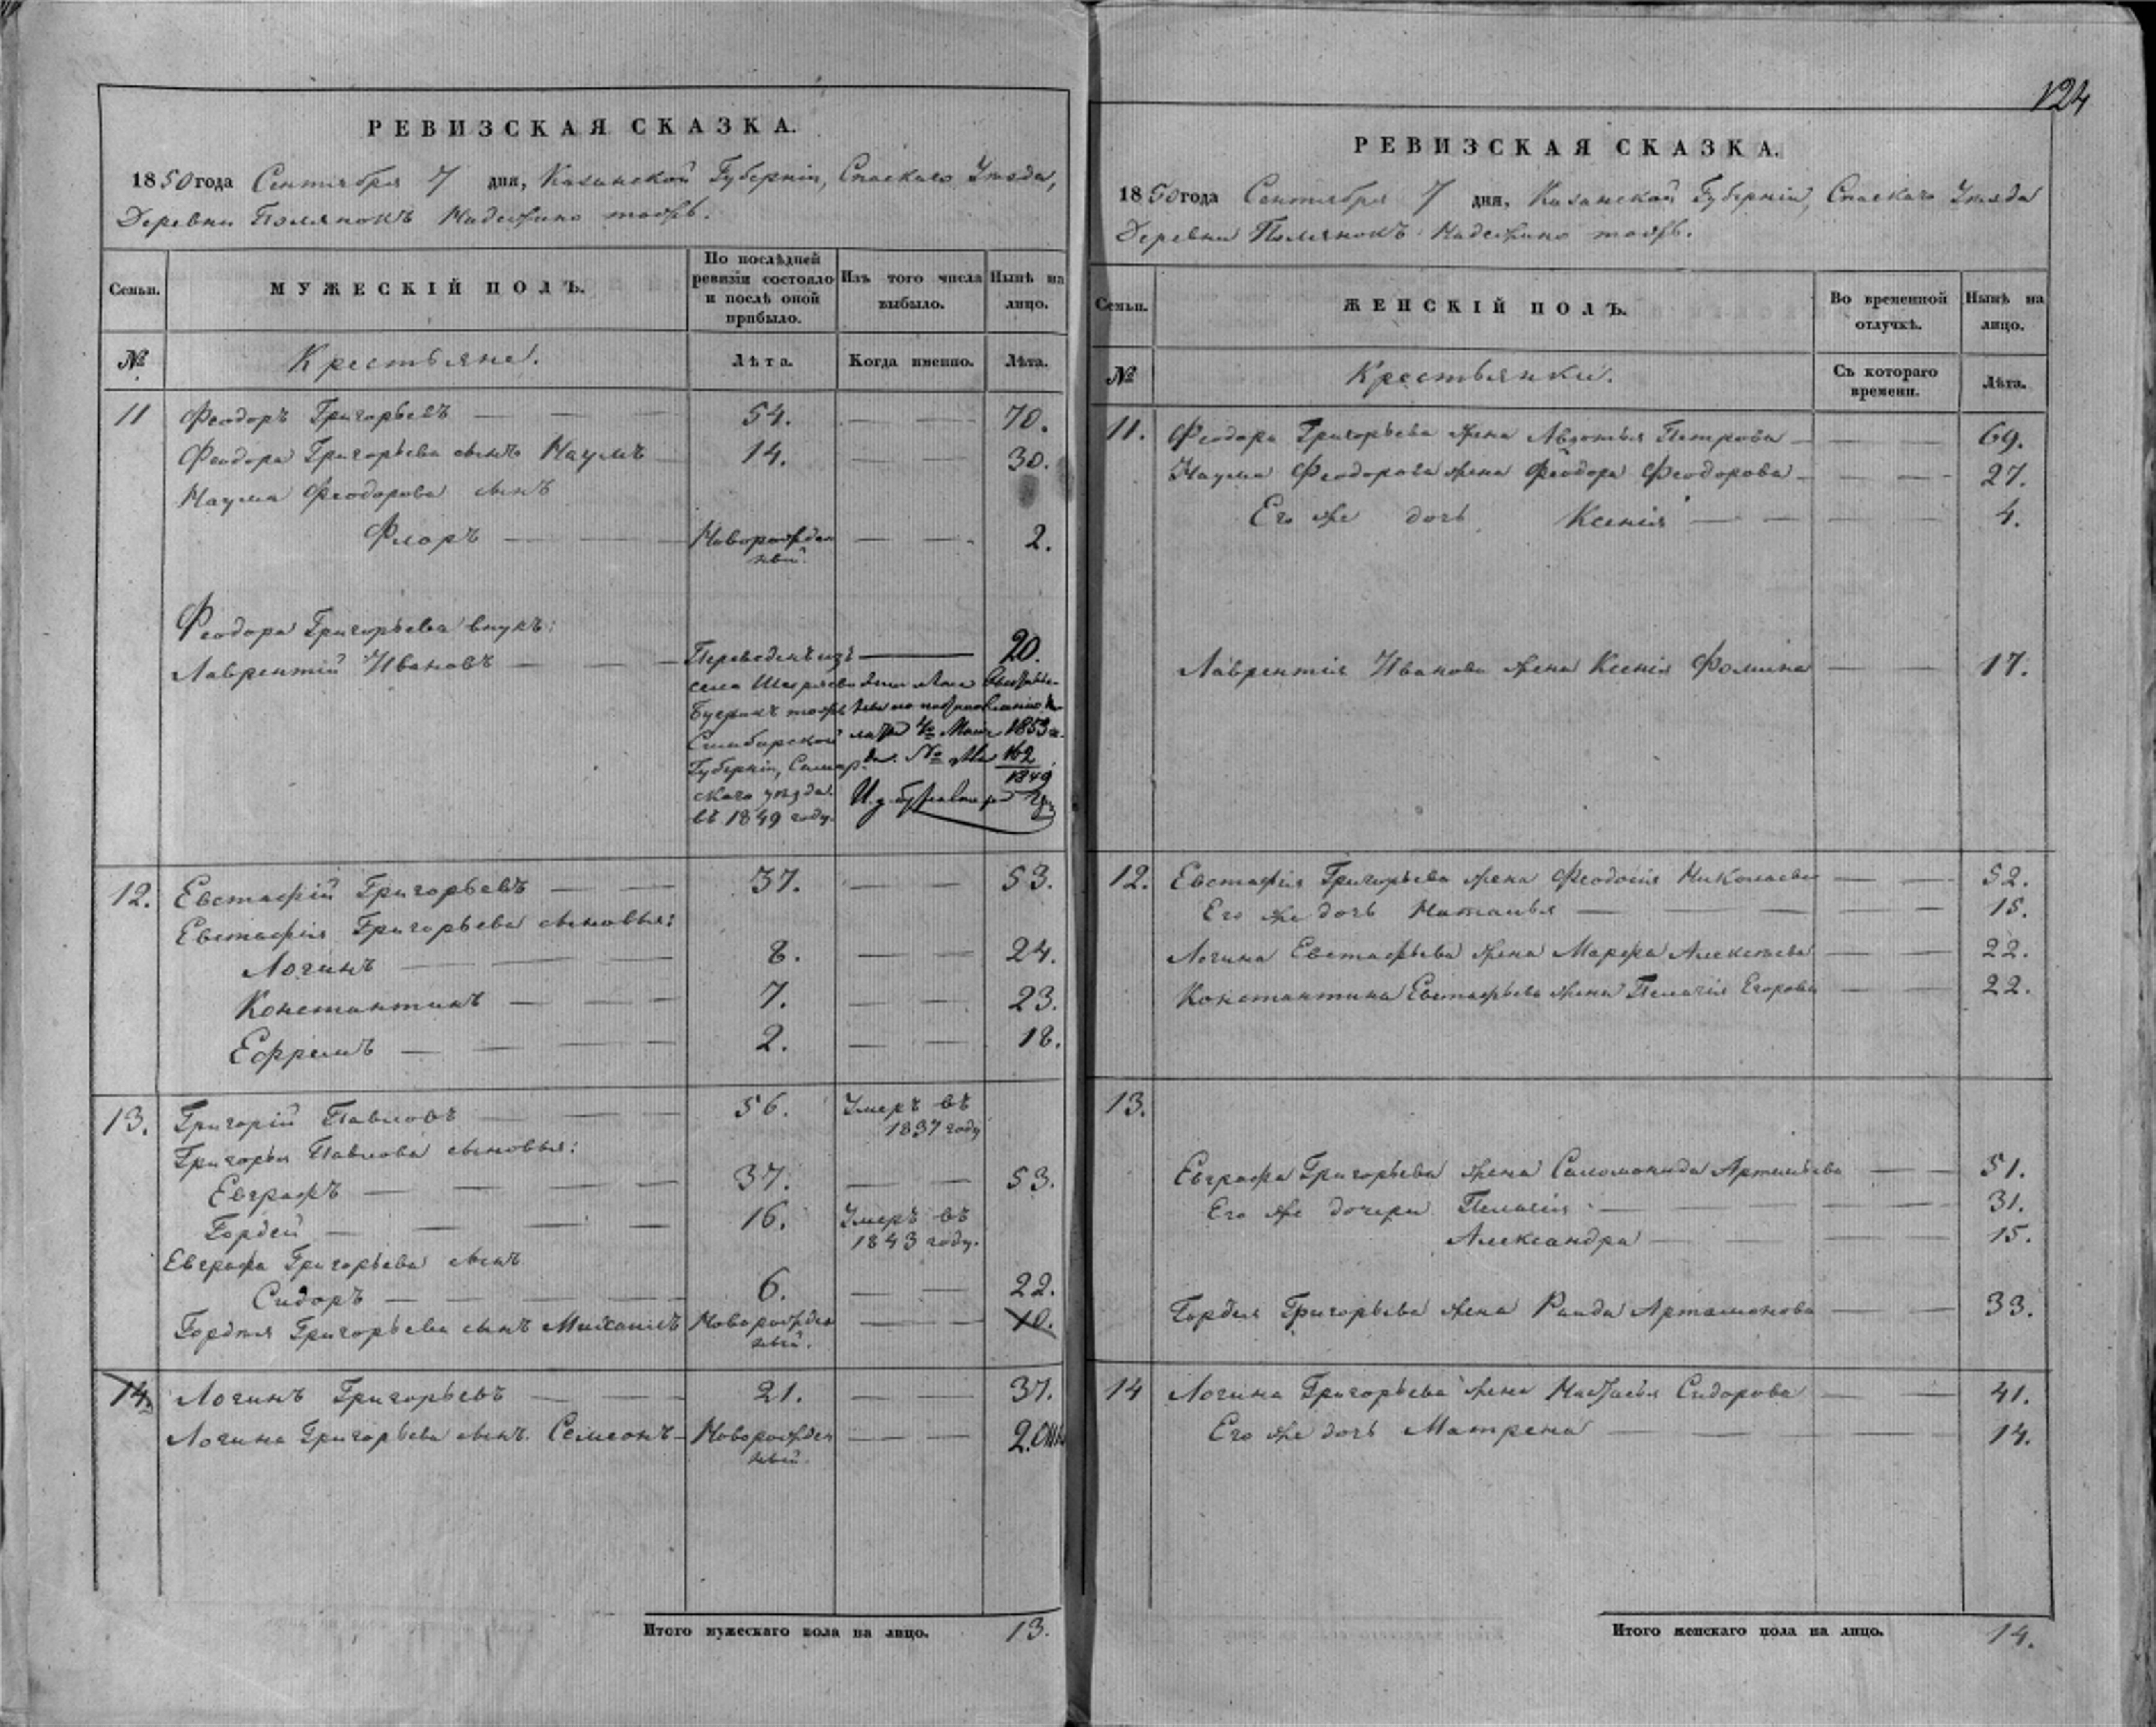 РЕВИЗСКАЯ СКАЗКА.
1850 года Сентября 7 дня, Казанской Губерніи, Спаскаго Уѣзда,
Деревни Полянокъ Надежино тожъ.
Семьи.
МУЖЕСКІЙ ПОЛЪ.
По послѣдней ревизіи состояло и послѣ оной прибыло.
Изъ того числа выбыло.
Нынѣ на лицо.
№
Крестьяне.
Лѣта.
Когда именно.
Лѣта.
11 Феодоръ Григорьевъ — — 54. — — 70.
Феодора Григорьева сынъ Наумъ — 14. — — 30.
Наума Феодорова сынъ
Флоръ — — — Новорожден — — 2.
ный.
Феодора Григорьева внукъ:
Лаврентій Ивановъ — — Переведенъ изъ — 20.
села
Бугринъ тожъ
Симбирской 1853
Губерніи, Самар- № 162
1849
скаго уѣзда.
въ 1849 году.
12. Евстафій Григорьевъ — — 37. — — 53.
Евстафія Григорьева сыновья:
Логинъ — — — 8. — — 24.
Константинъ — — — 7. — — 23.
Ефремъ — — — — 2. — — 18.
13. Григорій Павловъ — — — 56. Умеръ въ
1837 году
Григорья Павлова сыновья:
Евграфъ — — — — 37. — — 53.
Гордей — — — — 16. Умеръ въ
1843 году.
Евграфа Григорьева сынъ
Сидоръ — — — — 6. — — 22.
Гордѣя Григорьева сынъ Михаилъ Новорожден — — 10.
ный.
14. Логинъ Григорьевъ — — 21. — — 37.
Логина Григорьева сынъ Семіонъ — Новорожден — — 2.
ный.
Итого мужескаго пола на лицо. 13.
124
РЕВИЗСКАЯ СКАЗКА.
1850 года Сентября 7 дня, Казанской Губерніи, Спаскаго Уѣзда
Деревни Полянокъ Надежино тожъ.
Семьи.
ЖЕНСКІЙ ПОЛЪ.
Во временной отлучкѣ.
Нынѣ на лицо.
№
Крестьянки.
Съ котораго времени.
Лѣта.
11. Феодора Григорьева жена Авдотья Петрова — — — 69.
Наума Феодорова жена Феодора Феодорова — — — 27.
Его же дочь Ксенія — — — — 4.
Лаврентія Иванова жена Ксенія Фомина — — 17.
12. Евстафія Григорьева жена Феодосія Николаева — — 52.
Его же дочь Наталья — — — — — 15.
Логина Евстафьева жена Марфа Алексѣева — — 22.
Константина Евстафьева жена Пелагія Егорова — — 22.
13.
Евграфа Григорьева жена Саломонида Артемьева — — 51.
Его же дочери Пелагія — — — — 31.
Александра — — — — 15.
Гордѣя Григорьева жена Раида Артамонова — — 33.
14 Логина Григорьева жена Настасья Сидорова — — 41.
Его же дочь Матрена — — — — 14.
Итого женскаго пола на лицо. 14.